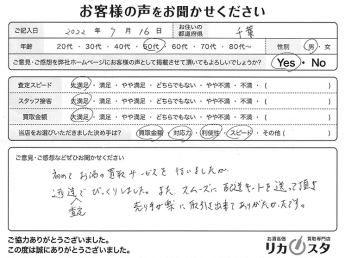 お客様の声をお聞かせください
ご記入日 2022年 7月 16日 お住いの都道府県 千葉
年齢 20代・30代・40代・50代・60代・70代・80代〜 性別 男・女
ご意見・ご感想を弊社ホームページにお客様の声として掲載させて頂いてもよろしいでしょうか? Yes・No
査定スピード 大満足・満足・やや満足・どちらでもない・やや不満・不満・( )
スタッフ接客 大満足・満足・やや満足・どちらでもない・やや不満・不満・( )
買取金額 大満足・満足・やや満足・どちらでもない・やや不満・不満・( )
当店をお選びいただきました決め手は? 買取金額・対応力・利便性・スピード・その他( )
ご意見・ご感想などぜひお聞かせください
初めてお酒の買取サービスを行いましたが
迅速でびっくりしました。また、スムーズに配送キットを送って頂き
査定
売り手が楽に取引出来てありがたかったです。
ご協力ありがとうございました。
この度は誠にありがとうございました。
お酒高価買取専門店
リカスタ